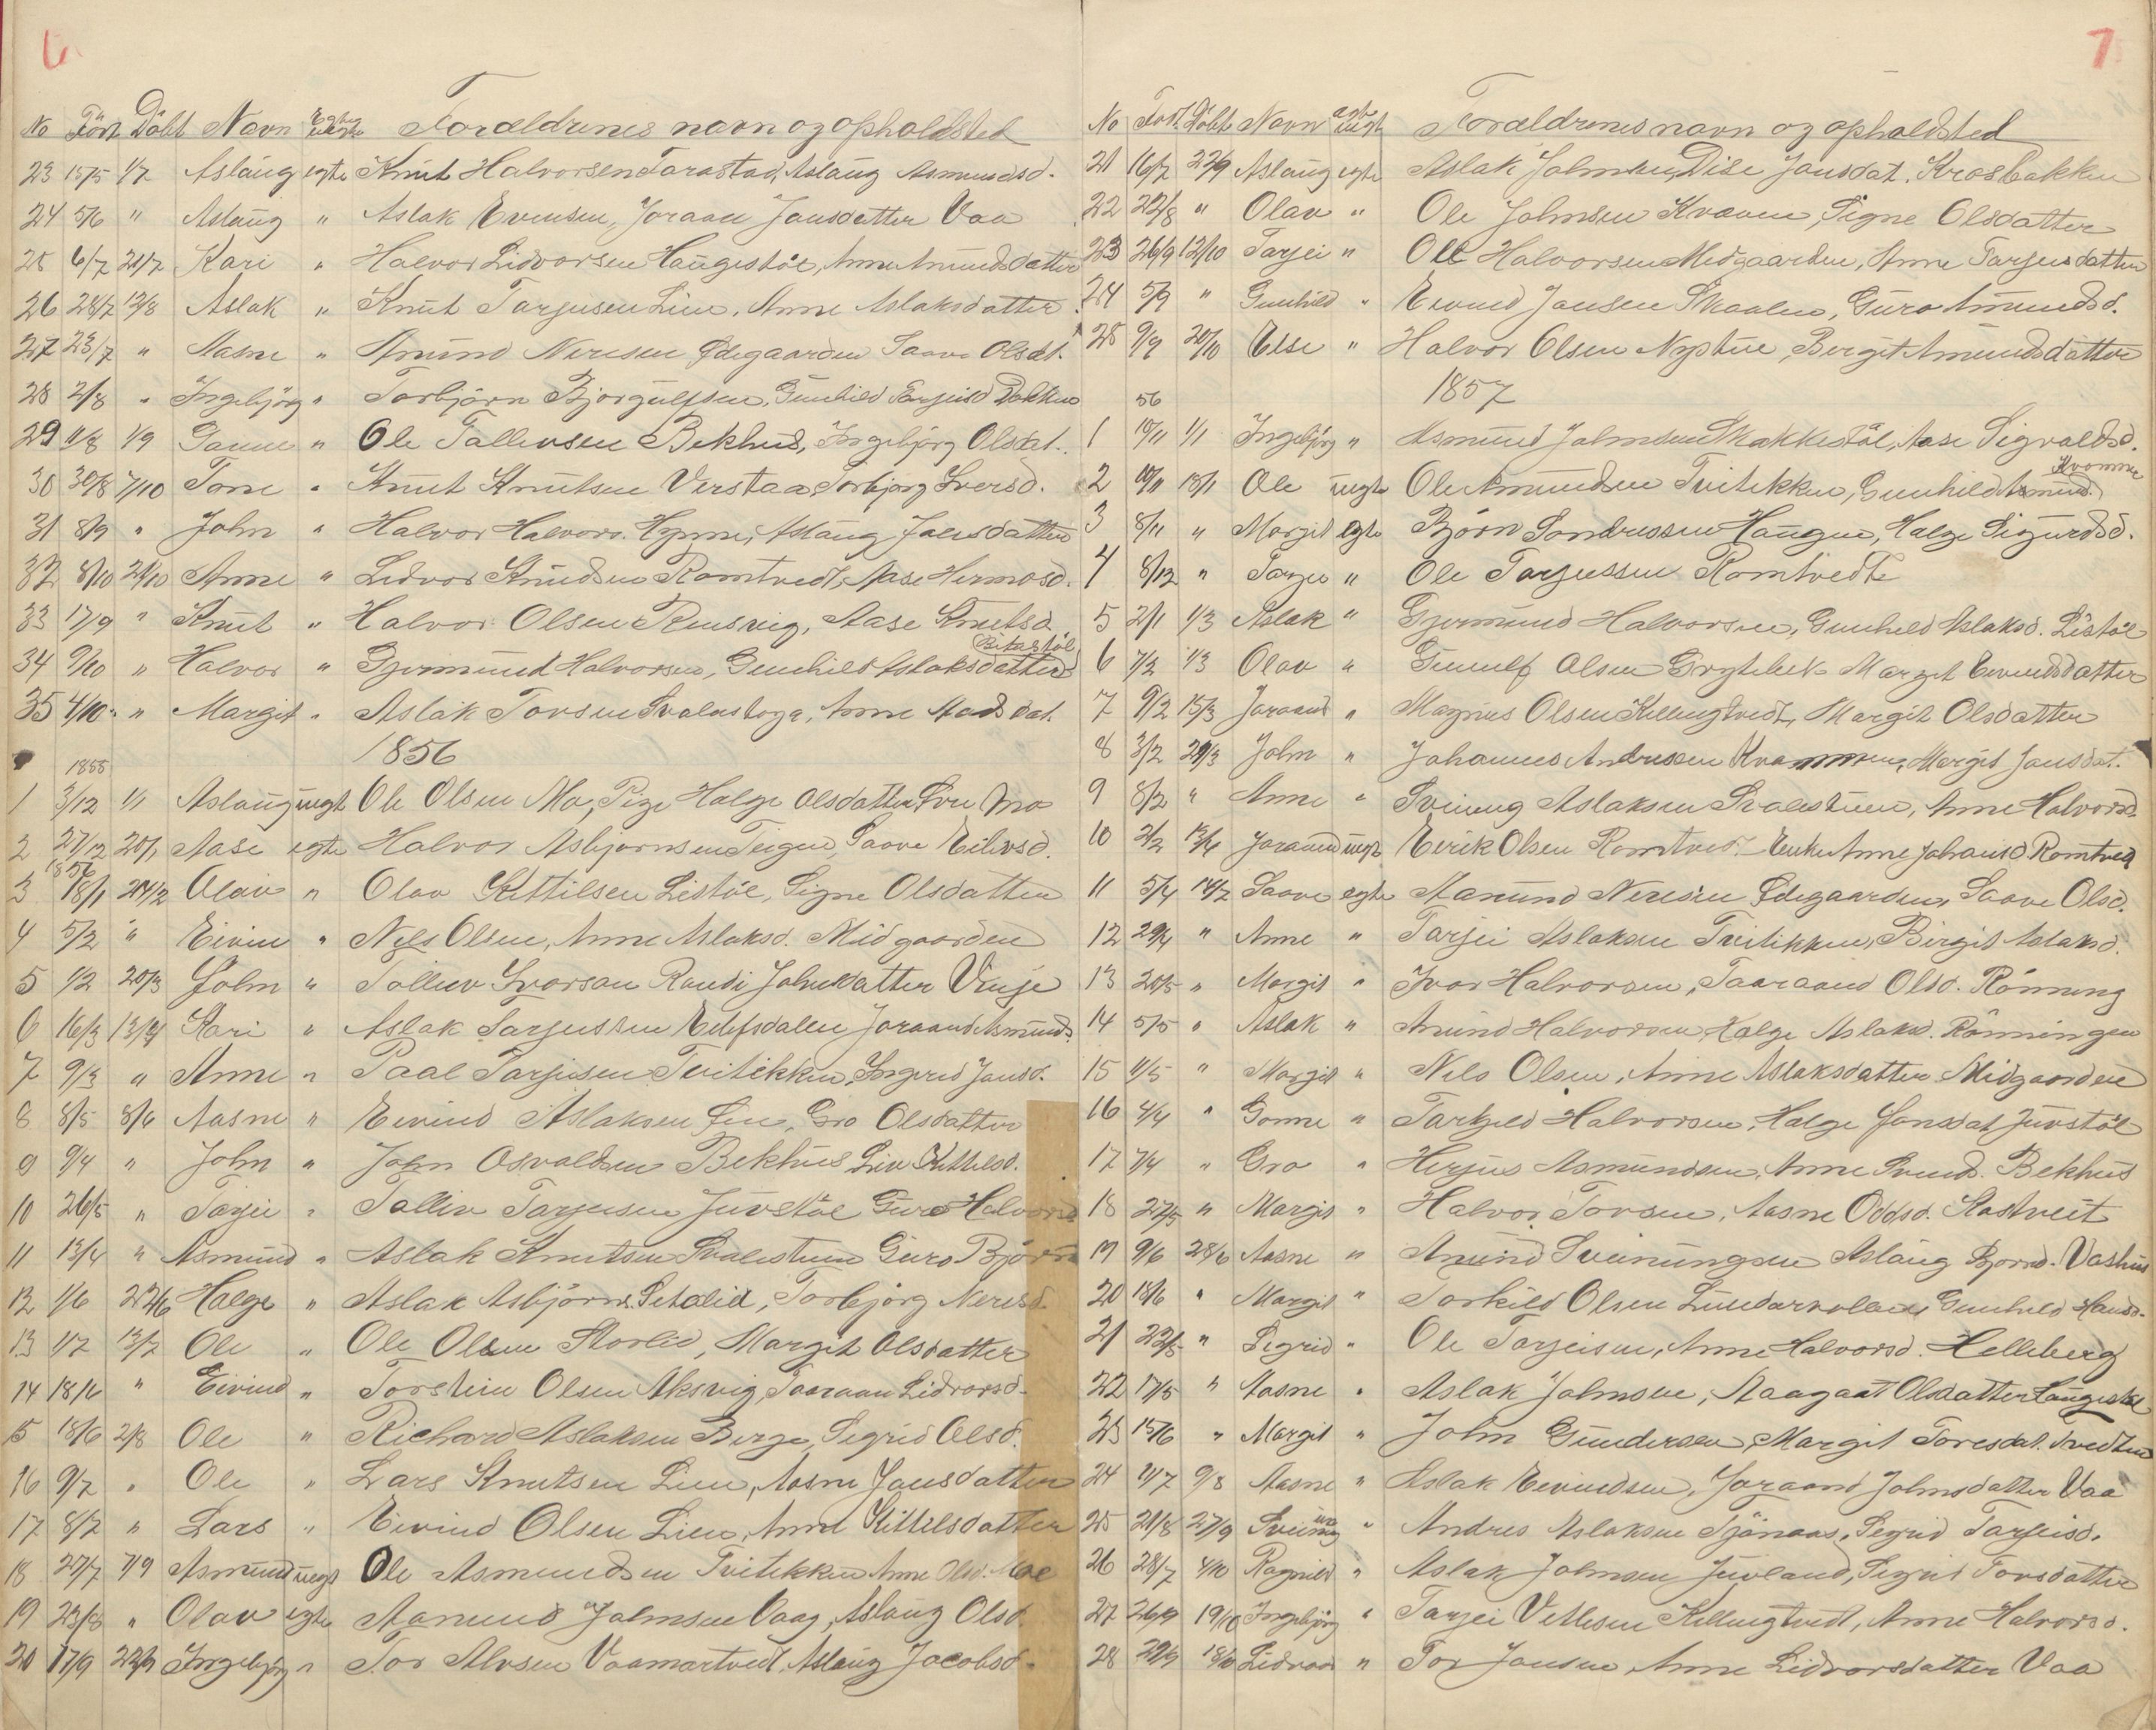 6
No Föst Döbt Navn Egte uegte Forældrenes navn og opholdsted
23 15/5 1/7 Aslaug egte Knut Halvorsen Tarastad, Aslaug Asmundsd.
24 5/6 " Aslaug " Aslak Evensen, Joraan Jansdatter Vaa
25 6/7 21/7 Kari " Halvor Lidvorsen Haugestöl, Anne Amundsdatter
26 28/7 12/8 Aslak " Knut Tarjusen Lien, Anne Aslaksdatter
27 23/7 " Aasne " Anund Neresen Ødegaarden Saave Olsdt.
28 2/8 " Ingebjörg " Torbjörn Bjorgulfsen, Gunhild Tarjeisd Bakken
29 11/8 1/9 Gunne " Ole Tallevsen Bekhus, Ingebjörg Olsdt.
30 30/8 7/10 Tone " Knut Knutsen Verstaa Torbjörg Iversd.
31 8/9 " John " Halvor Halvors. Hynne, Aslaug Jansdatter
32 8/10 21/10 Anne " Lidvor Knudsen Romtvedt, Aase Hermosd.
33 17/9 " Knut " Halvor Olsen Rensvig, Aase Knutsd.
34 9/10 " Halvor " Gjermund Halvorsen, Gunhild Aslaksdatter Bitastöl
35 4/10 " Margit " Aslak Torsen Svalastoga, Anne Aadsdat.
1856
1855
1 3/12 1/1 Aslaug uegt Ole Olsen Mo, Pige Halge Olsdatter Mo
2 27/12 20/1 Aase egte Halvor Asbjornsen Teigen, Saave Eilivsd.
1856
3 18/1 24/2 Olav " Olav Kittilsen Listöl, Signe Olsdatter
4 5/2 " Eivin " Nils Olsen, Anne Aslaksd. Midgaarden
5 1/2 20/3 John " Tollev Ivorsan Randi Johnsdatter Vinje
6 16/3 13/4 Kari " Aslak Tarjussen Edefsdalen Joraand Asmunds.
7 9/3 " Anne " Paal Tarjusen Tveitekken, Ingerid Jansd.
8 8/5 8/6 Aasne " Eivind Aslaksen Lien, Gro Olsdatter
9 9/4 " John " John Osvaldsen Bekhus Liv Kittilsd.
10 26/5 " Tarjei " Tolliv Tarjusen Juvstöl Guro Halvorsd
11 13/4 " Asmund " Aslak Knutsen Svalestuen Guro Björn
12 1/6 22/6 Halge " Aslak Asbjörns. Setalid, Torbjörg Neresd.
13 1/7 13/7 Ole " Ole Olsen Storlid, Margit Olsdatter
14 18/6 " Eivind " Torstein Olsen Aksvig, Taaraan Lidvorsd.
15 18/6 2/8 Ole " Richard Aslaksen Berge, Sigrid Olsd.
16 9/7 " Ole " Lars Knutsen Lien, Aasne Jansdatter
17 8/7 " Lars " Eivind Olsen Lien, Anne Kittilsdatter
18 27/7 7/9 Asmund uegt Ole Asmundsen Tveitekken Anne Olsd. Moe
19 23/8 " Olav egte Aanund Johnsen Vaag, Aslaug Olsd.
20 17/9 22/9 Ingebjörg " Tor Alvsen Vaamartvedt, Aslaug Jacobsd.
7
No Fost. Döbt Navn egte uegt Forældrenes navn og opholdsted
21 16/7 22/9 Aslaug egte Aslak Johnsen, Dise Jansdat. Krosbakken
22 22/8 " Olav " Ole Johnsen Kvaven, Signe Olsdatter
23 26/9 12/10 Tarjei " Ole Halvorsen Midgaarden, Anne Tarjusdatter
24 5/9 " Gunhild " Eivind Jansen Skaalen, Guro Amundsd.
25 9/9 20/10 Else " Halvor Olsen Nystue, Bergit Amundsdatter
1857
56
1 10/11 1/1 Ingebjörg " Asmund Johnsen Skakkestöl, Aase Sigvaldsd.
2 10/11 18/1 Ole uegte Ole Amundsen Tveitekken, Gunhild Asmund. Kvamme
3 8/11 " Margit egte Björn Sondresen Haugen, Halge Sigurdsd.
4 8/12 " Tarjei " Ole Tarjussen Romtvedt
5 2/1 1/3 Aslak " Gjermund Halvorsen, Gunhild Aslaksd. Listöl
6 7/2 1/3 Olav " Gunulf Olsen Grytebek Margit Eivindsdatter
7 9/2 15/3 Joraand " Magnus Olsen Killingtvedt, Margit Olsdatter
8 3/2 29/3 John " Johannes Andresen Kvammen, Margit Jansdat.
9 8/2 " Anne " Sveinung Aslaksen Svalestuen, Anne Halvorsd.
10 2/2 13/4 Joraand uegt Eirik Olsen Romtved. Enke Anne Johansd Romtved
11 5/4 14/7 Saave egte Aanund Neresen Ødegaarden, Saave Olsd.
12 29/4 " Anne " Tarjei Aslaksen Tveitikken, Birgit Aslaksd.
13 20/5 " Margit " Ivar Halvorsen, Taaraand Olsd. Rönning
14 5/5 " Aslak " Anund Halvorsen Halge Aslaksd. Rönningen
15 11/5 " Margit " Nils Olsen, Anne Aslaksdatter Midgaarden
16 4/4 " Gonne " Tarkjeld Halvorsen, Halge Jonsdat Juvstöl
17 7/4 " Gro " Herjus Asmundsen, Anne Svend. Bekhus
18 27/5 " Margit " Halvor Torsen, Aasne Oddsd. Kastveit
19 9/6 28/6 Aasne " Anund Sveinungsen Aslaug Bjornd. Vashus
20 18/6 " Margit " Torkild Olsen Gunhild Hansd.
21 22/5 " Sigrid " Ole Tarjeisen, Anne Halvorsd. Helleberg
22 17/5 " Aasne " Aslak Johnsen, Aagaat Olsdatter Laugestöl
23 15/6 " Margit " John Gundersen, Margit Toresdat. Tvedten
24 11/7 9/8 Aasne " Aslak Eivindsen, Joraand Johnsdatter Vaa
25 21/8 27/9 Sveinung " Andres Aslaksen Tjönaas, Sigrid Tarjeisd.
26 28/7 4/10 Ragnild " Aslak Johnsen Juvland, Sigrid Torsdatter
27 26/9 19/10 Ingebjörg " Tarjei Vetlesen Killingtvedt, Anne Halvorsd.
28 29/9 18/10 Lidvor " Tor Jansen Anne Lidvorsdatter Vaa